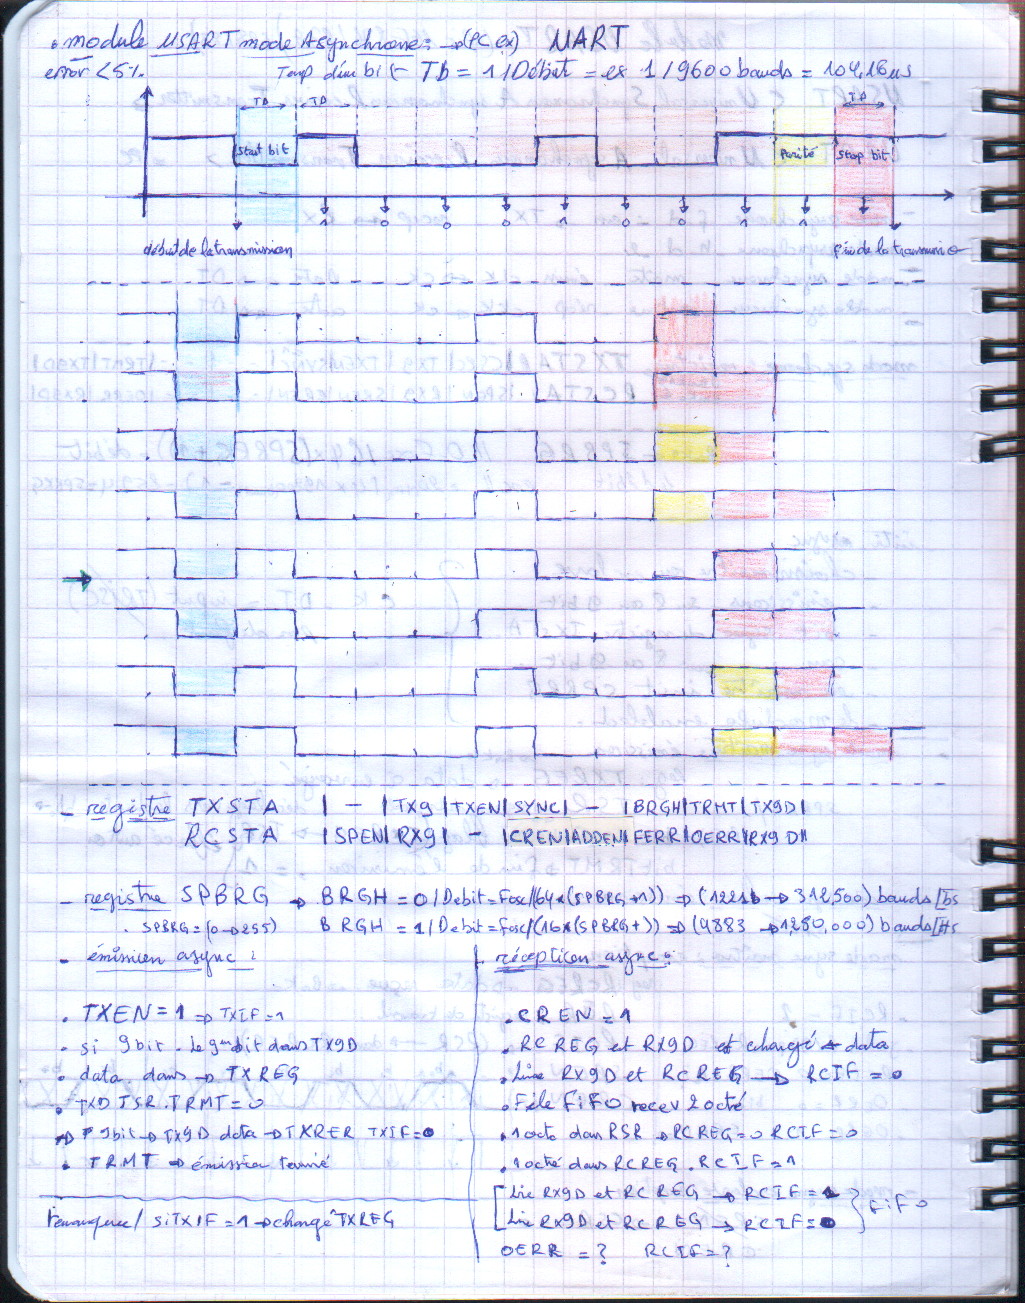 module USART mode Asynchrone: → (PC ex) UART
error <5%. Temp d'un bit Tb = 1/Débit = ex 1/9600 bauds = 104,16us
TB TB TB
Start bit Parité Stop bit
1 0 0 0 1 0 0 1 1
début de la transmission fin de la transmissio
- registre TXSTA | - |TX9|TXEN|SYNC| - |BRGH|TRMT|TX9D|
RCSTA |SPEN|RX9| - |CREN|ADDEN|FERR|OERR|RX9D|
- registre SPBRG → BRGH = 0/Debit=Fosc/(64*(SPBRG+1)) ⇒ (1221b → 312,500) bauds [bs
. SPBRG=(0→255) BRGH = 1/Debit=Fosc/(16*(SPBRG+)) ⇒ (4883 → 1250,000) bauds [Hs
- émission async :
. TXEN = 1 ⇒ TXIF=1
. si 9bit . le 9e bit dans TX9D
. data dans → TXREG
. TXD TSR.TRMT=0
9bit → TX9D data → TXRER TXIF=0
. TRMT ⇒ émission terminé
Remarque/ si TXIF = 1 → changé TXREG
réception async :
. CREN = 1
. RCREG et RX9D et changé data
. Lire RX9D et RCREG → RCIF = 0
. File FiFo recev 2octé
. 1octe dan RSR → RCREG=0 RCIF=0
. 1octé dans RCREG . RCIF=1
[Lire RX9D et RCREG → RCIF=1 } FiFo
[Lire RX9D et RCREG → RCIF=0
OERR = ? RCIF=?